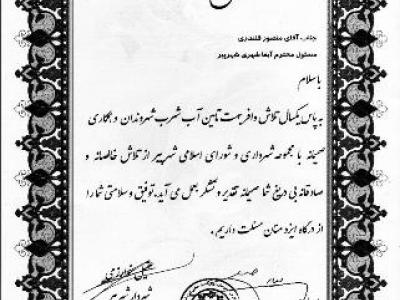 جناب آقای منصور قلندری
مسئول محترم آبفا شهری شهرپیر
با سلام
به پاس یکسال تلاش وافر جهت تامین آب شرب شهروندان و همکاری
صمیمانه با مجموعه شهرداری و شورای اسلامی شهرپیر از تلاش خالصانه و
صادقانه بی دریغ شما صمیمانه تقدیر و تشکر بعمل می آید، توفیق و سلامتی شما را
از درگاه ایزد منان مسئلت داریم.
شهردار شهرپیر